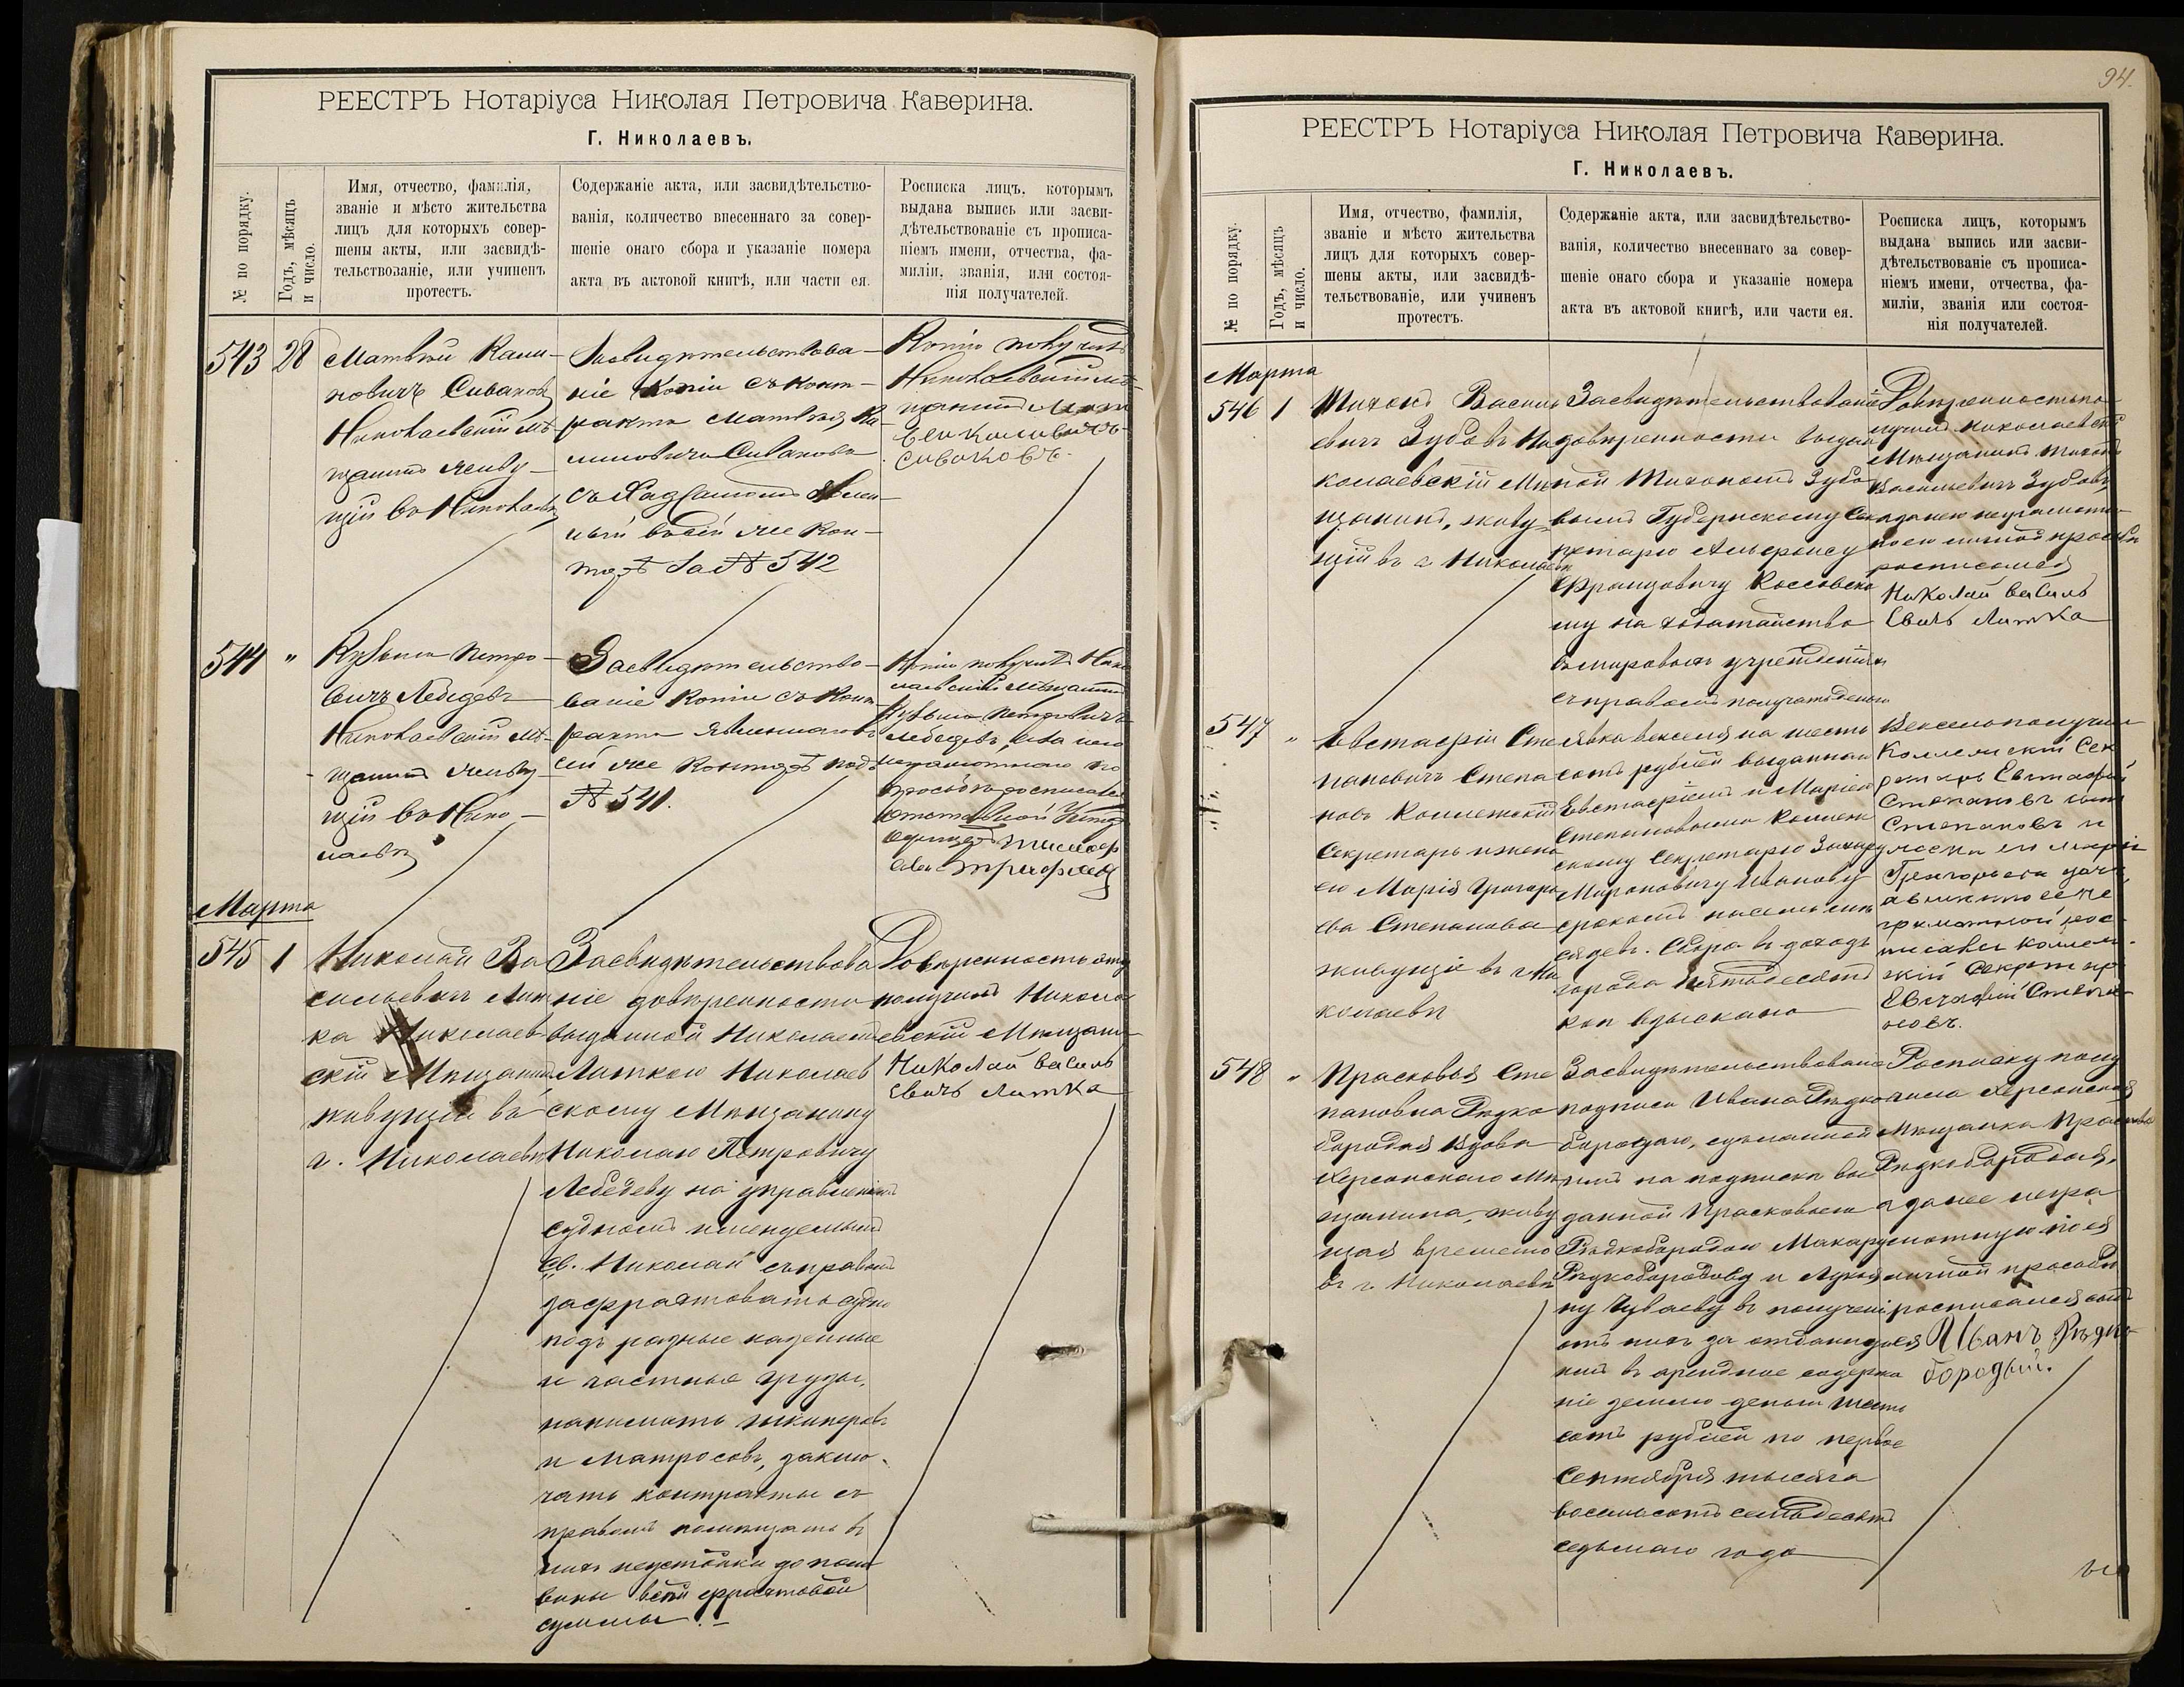 РЕЕСТРЪ Нотаріуса Николая Петровича Каверина.
Г. Николаевъ.
№ по порядку.
Годъ, мѣсяцъ
и число.
Имя, отчество, фамилія,
званіе и мѣсто жительства
лицъ для которыхъ совер-
шены акты, или засвидѣ-
тельствованіе, или учиненъ
протестъ.
Содержаніе акта, или засвидѣтельство-
ванія, количество внесеннаго за совер-
шеніе онаго сбора и указаніе номера
акта въ актовой книгѣ, или части ея.
Росписка лицъ, которымъ
выдана выпись или засви-
дѣтельствованіе съ прописа-
ніемъ имени, отчества, фа-
миліи, званія, или состоя-
нія получателей.
543 28
Матвѣй Кали-
новичъ Сиваковъ
Николаевскій мѣ-
щанинъ живу-
щій въ Николаевѣ
Засвидѣтельствова-
ніе копіи съ конт-
ракта Матвѣя Ка-
линовича Сивакова
явлен-
ный въ сей же кон-
торѣ за № 542
Копію получилъ
Николаевскій мѣ-
щанинъ
Сиваковъ
544 "
Кузьма Петро-
вичъ Лебедевъ
Николаевскій мѣ-
щанинъ живу-
щій въ Нико-
лаевѣ
Засвидѣтельство-
ваніе копіи съ конт-
ракта явленнаго въ
сей же конторѣ подъ
№ 541.
Копію получилъ Нико
лаевскій мѣщанинъ
Кузьма Петровичъ
Лебедевъ, а за него
неграмотнаго по
просьбѣ росписался
отставной Унтеръ
Офицеръ
Марта
545 1
Николай Ва
сильевичъ Лит
ка Николаев
скій Мѣщанинъ
живущій въ
г. Николаевѣ
Засвидѣтельствова
ніе довѣренности
выданной Николаемъ
Литкою Николаев
скому Мѣщанину
Николаю Петровичу
Лебедеву на управленіе
судномъ именуемымъ
„Св. Николай съ правомъ
зафрахтовать судно
подъ разные казенные
и частные грузы,
нанимать шкиперовъ
и матросовъ, заклю-
чать контракты съ
правомъ помѣщать въ
нихъ неустойки до поло
вины всей фрахтовой
суммы.–
Довѣренность эту
получилъ Никола
евскій Мѣщанинъ
Николай Василь
Евичъ Литка
94.
РЕЕСТРЪ Нотаріуса Николая Петровича Каверина.
Г. Николаевъ.
№ по порядку.
Годъ, мѣсяцъ
и число.
Имя, отчество, фамилія,
званіе и мѣсто жительства
лицъ для которыхъ совер-
шены акты, или засвидѣ-
тельствованіе, или учиненъ
протестъ.
Содержаніе акта, или засвидѣтельство-
ванія, количество внесеннаго за совер-
шеніе онаго сбора и указаніе номера
акта въ актовой книгѣ, или части ея.
Росписка лицъ, которымъ
выдана выпись или засви-
дѣтельствованіе съ прописа-
ніемъ имени, отчества, фа-
миліи, званія или состоя-
нія получателей.
Марта
546 1
Тихонъ Василь
евичъ Зубовъ Ни
колаевскій Мѣ
щанинъ, живу-
щій въ г. Николаевѣ
Засвидѣтельствованіе
довѣренности выдан
ной Тихономъ Зубо
вымъ Губернскому Сек
ретарю Альфонсу
Францовичу Коссовско
му на ходатайство
въ мировыхъ учрежденіяхъ
съ правомъ получать деньги
Довѣренность по
лучилъ Николаевскій
Мѣщанинъ Тихонъ
Васильевичъ Зубовъ,
а за него неграмотна
по его личной просьбѣ
росписался
Николай Василь
Евичъ Литка
547 "
Евстафій Сте
пановичъ Степа
новъ Коллежскій
Секретарь и жена
его Марія Григорь
ева Степанова
живущіе въ г. Ни
колаевѣ
Явка векселя на шесть
сотъ рублей выданнаго
Евстафіемъ и Маріею
Степановыми Коллеж
скому Секретарю Захару
Мироновичу Иванову
срокомъ на семь мѣ
сяцевъ. Сбора въ доходъ
города пятьдесятъ
коп взыскано
Вексель получили
Коллежскій Сек
ретарь Евстафій
Степановъ сынъ
Степановъ и
жена его Марія
Григорьева дочь,
а вмѣсто ее не
грамотной рос
писался Коллеж-
скій Секретарь
Евстафій Степа
новъ.
548 "
Прасковья Сте
пановна Рѣдко
бородая вдова
Херсонскаго Мѣ
щанина, живу
щая временно
въ г. Николаевѣ
Засвидѣтельствованіе
подписи Ивана Рѣдко
бородаго, сдѣланной
имъ на подписки вы
данной Прасковьею
Рѣдкобородою Макару
Рѣдкобородову и Лукья
ну Чуваеву въ полученіи
отъ нихъ за отданную
имъ въ арендное содержа
ніе землю деньги шесть
сотъ рублей по первое
Сентября тысяча
восемьсотъ семьдесятъ
седьмаго года
Росписку полу
чила Херсонская
Мѣщанка Прасковья
Рѣдкобородая,
а за нее негра
мотную по ея
личной просьбѣ
росписался сынъ
ея Иванъ Рѣдко-
бородый.